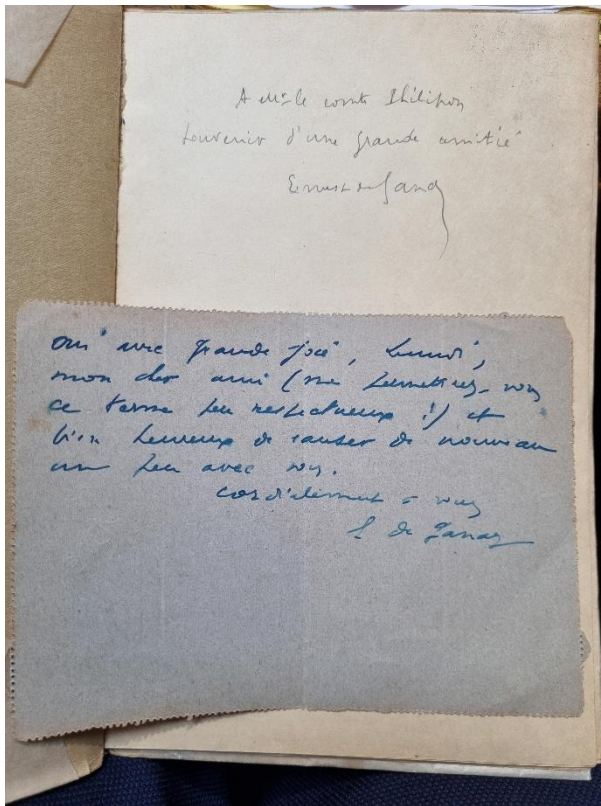 A Mr le comte Philipon
souvenir d'une grande amitié
Ernest de Ganay
Oui avec grande joie, lundi,
mon cher ami (me permettez-vous
ce terme peu respectueux !) et
bien heureux de causer de nouveau
un peu avec vous.
Cordialement à vous
E de Ganay